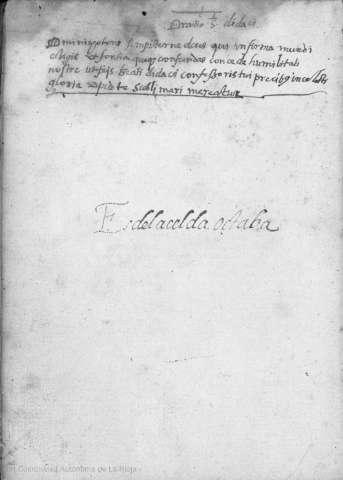 Oratio S. didaci
Omnipotens sempiterne deus qui infirma mundi
eligis ut fortia queq confundas concede humilitati
nostre ut pijs beati didaci confessoris tui precibus in celesti
gloria sublimari mereatur
Es de la celda octaba
Comunidad Autónoma de La Rioja